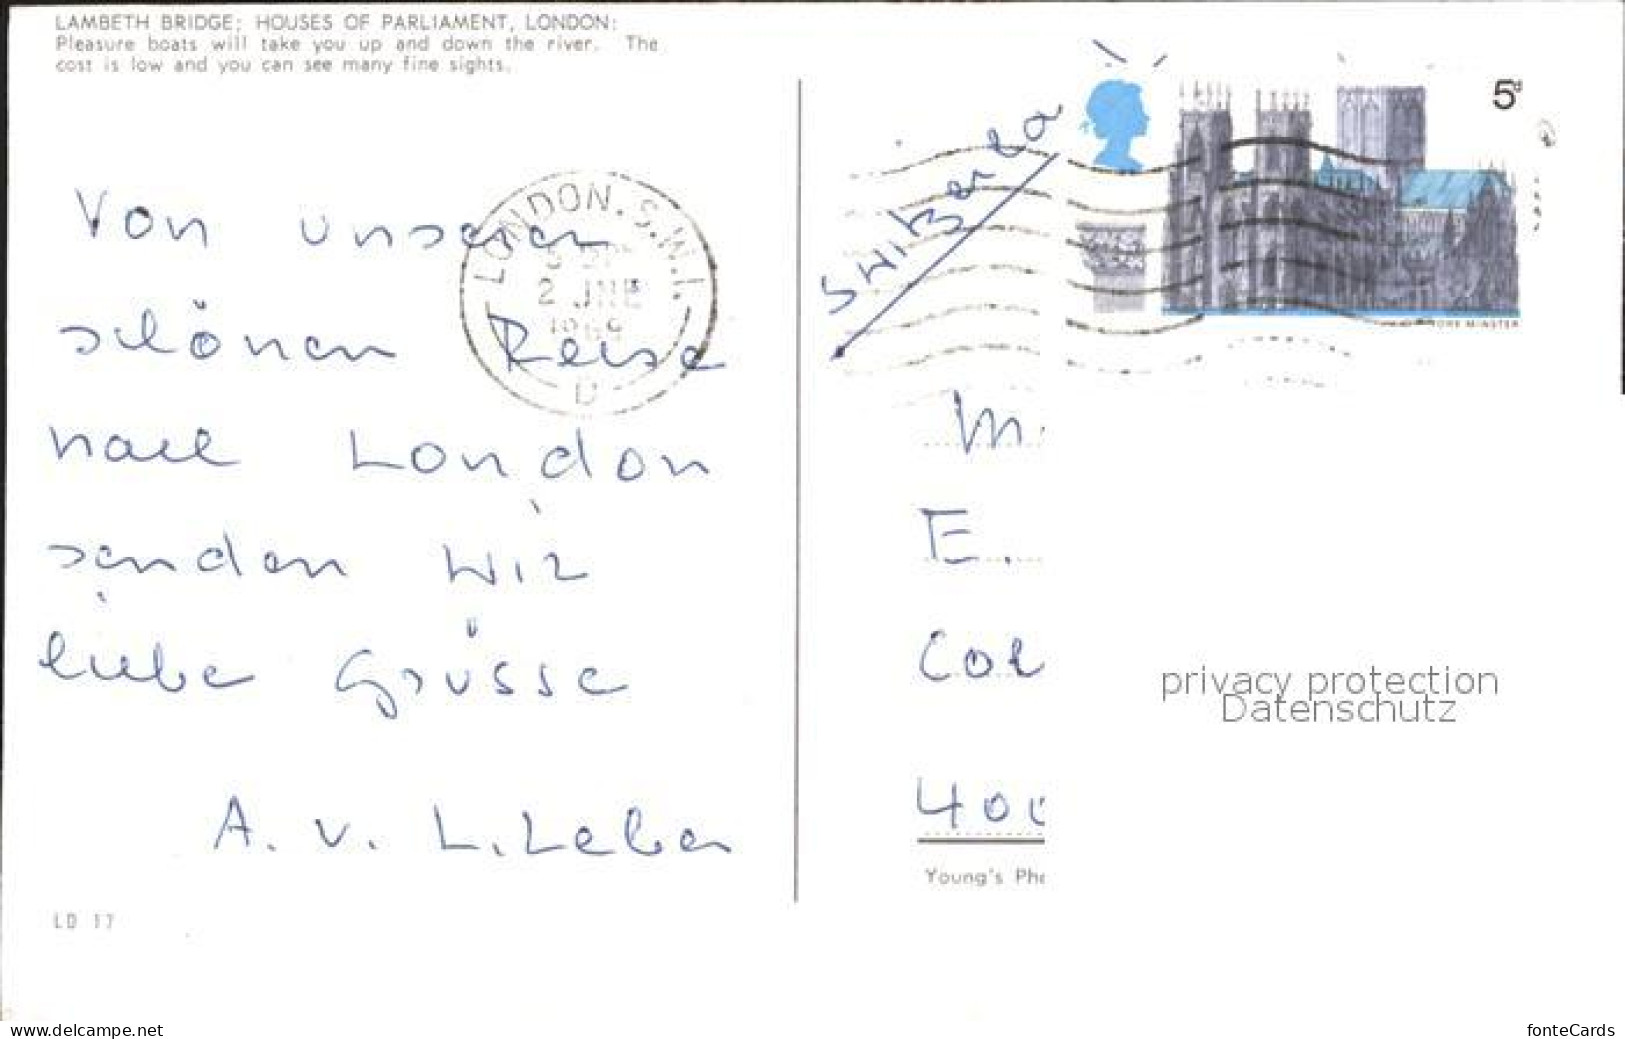 LAMBETH BRIDGE; HOUSES OF PARLIAMENT, LONDON:
Pleasure boats will take you up and down the river. The
cost is low and you can see many fine sights.
Von unseren
schönen Reise
nach London
senden wir
liebe Grüsse
A. v. L. Leber
LD 17
LONDON. S.W.1.
2 JNE
1969
D
5d
YORK MINSTER
M.
E.
Col
400
Young's Pho
privacy protection
Datenschutz
www.delcampe.net
fonteCards